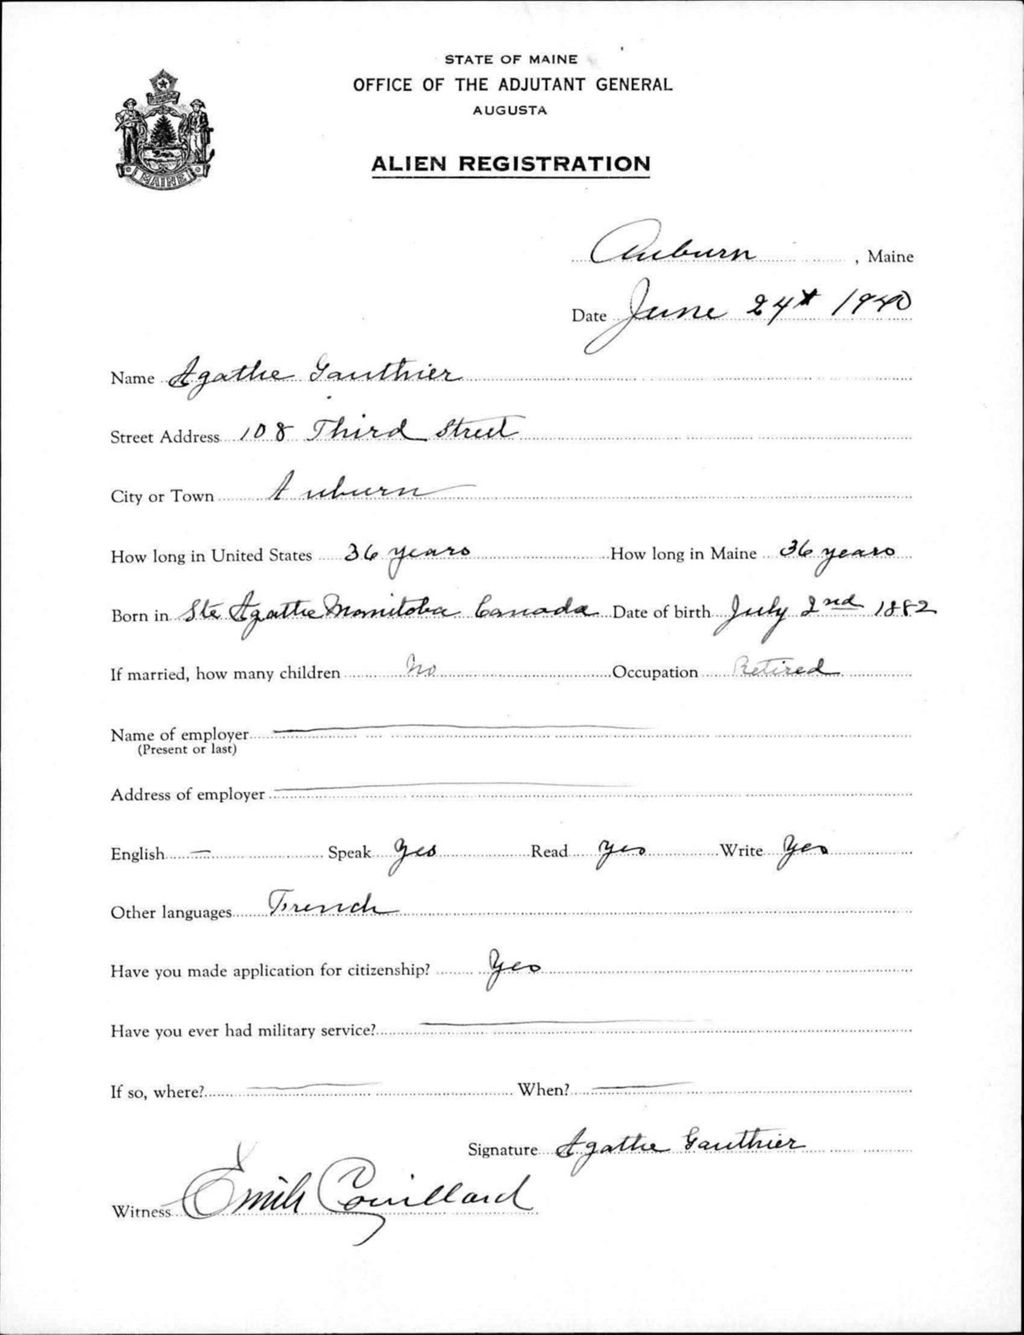 STATE OF MAINE
OFFICE OF THE ADJUTANT GENERAL
AUGUSTA
ALIEN REGISTRATION
MAINE
Auburn, Maine
Date June 24th 1940
Name Agathe Gauthier
Street Address 108 Third Street
City or Town Auburn
How long in United States 36 years How long in Maine 36 years
Born in Ste Agathe Manitoba Canada Date of birth July 2nd 1882
If married, how many children No Occupation Retired
Name of employer —
(Present or last)
Address of employer —
English — Speak Yes Read Yes Write Yes
Other languages French
Have you made application for citizenship? Yes
Have you ever had military service? —
If so, where? — When? —
Signature Agathe Gauthier
Witness Emile Couillard